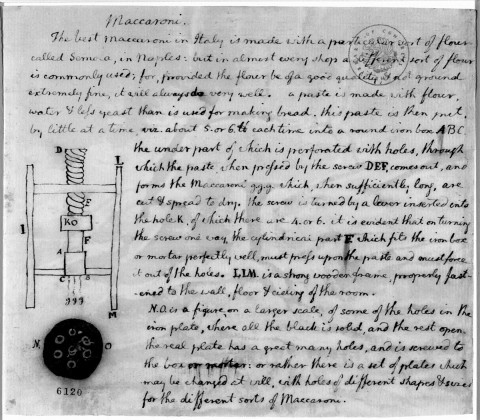 Maccaroni.
The best maccaroni in Italy is made with a particular sort of flour
called Semola, in Naples: but in almost every shop a different sort of flour
is commonly used; for, provided the flour be of a good quality, & not ground
extremely fine, it will always do very well. a paste is made with flour,
water & less yeast than is used for making bread. this paste is then put,
by little at a time, viz. about 5. or 6. ℔ each time into a round iron box ABC.
the under part of which is perforated with holes, through
which the paste, when pressed by the screw DEF, comes out, and
forms the Maccaroni g.g.g. which, when sufficiently long, are
cut & spread to dry. the screw is turned by a lever inserted into
the hole K, of which there are 4. or 6. it is evident that on turning
the screw one way, the cylindrical part F. which fits the iron box
or mortar perfectly well, must press upon the paste and must force
it out of the holes. LLM. is a strong wooden frame, properly fast-
-ened to the wall, floor & cieling of the room.
N.O. is a figure, on a larger scale, of some of the holes in the
iron plate, where all the black is solid, and the rest open.
the real plate has a great many holes, and is screwed to
the box or mortar: or rather there is a set of plates which
may be changed at will, with holes of different shapes & sizes
for the different sorts of Maccaroni.
D
L
E
I
KO
F
A
C
B
g g g
M
N.
O
6120